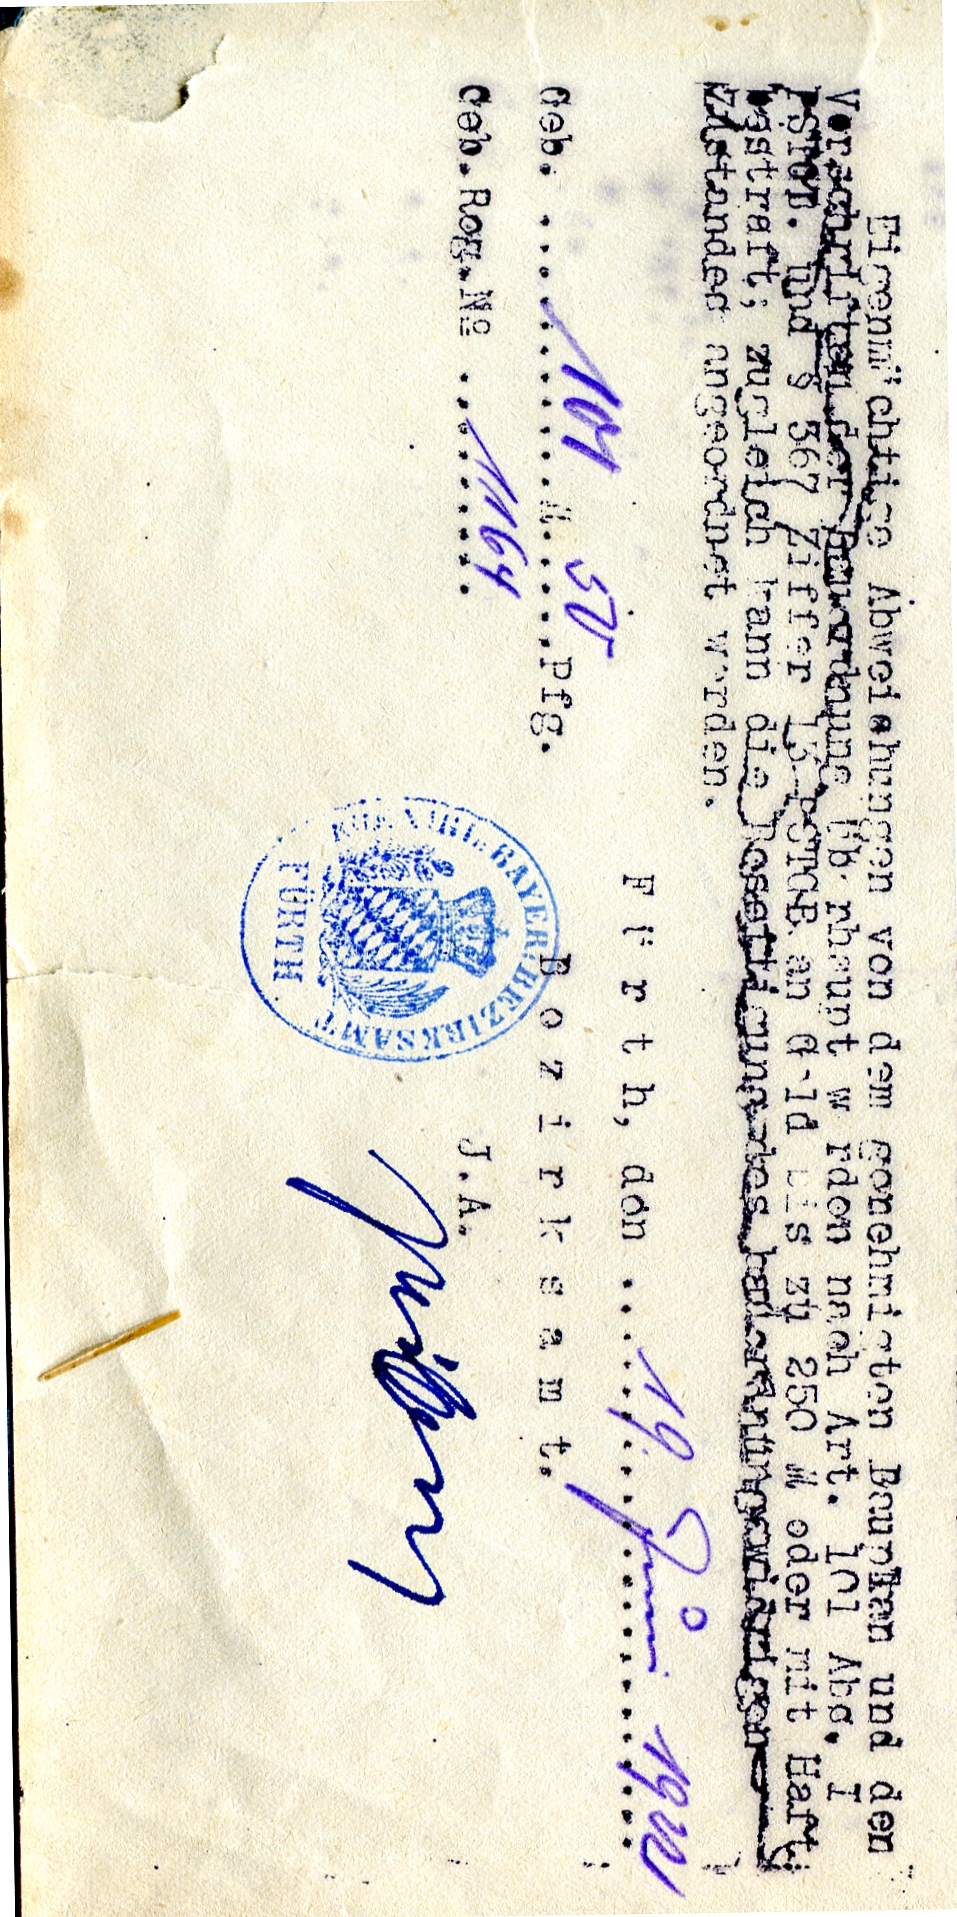 Eigenmächtige Abweichungen von dem genehmigten Bauplan und den
Vorschriften der Bauordnung üb rhaupt w rden nach Art. 101 Abs. I
PStGB. und § 367 Ziffer 15 RSTGB. an G ld bis zu 250 M oder mit Haft
bestraft; zugleich kann die Beseitigung des bauordnungswidrigen
Zustandes angeordnet werden.
Fürth, den ... 19. Juni 1922
Geb. .... 104 M. 50 Pfg.
Bezirksamt.
Geb.Reg.No ... 1164
J.A.
BAYER. BEZIRKSAMT
FÜRTH